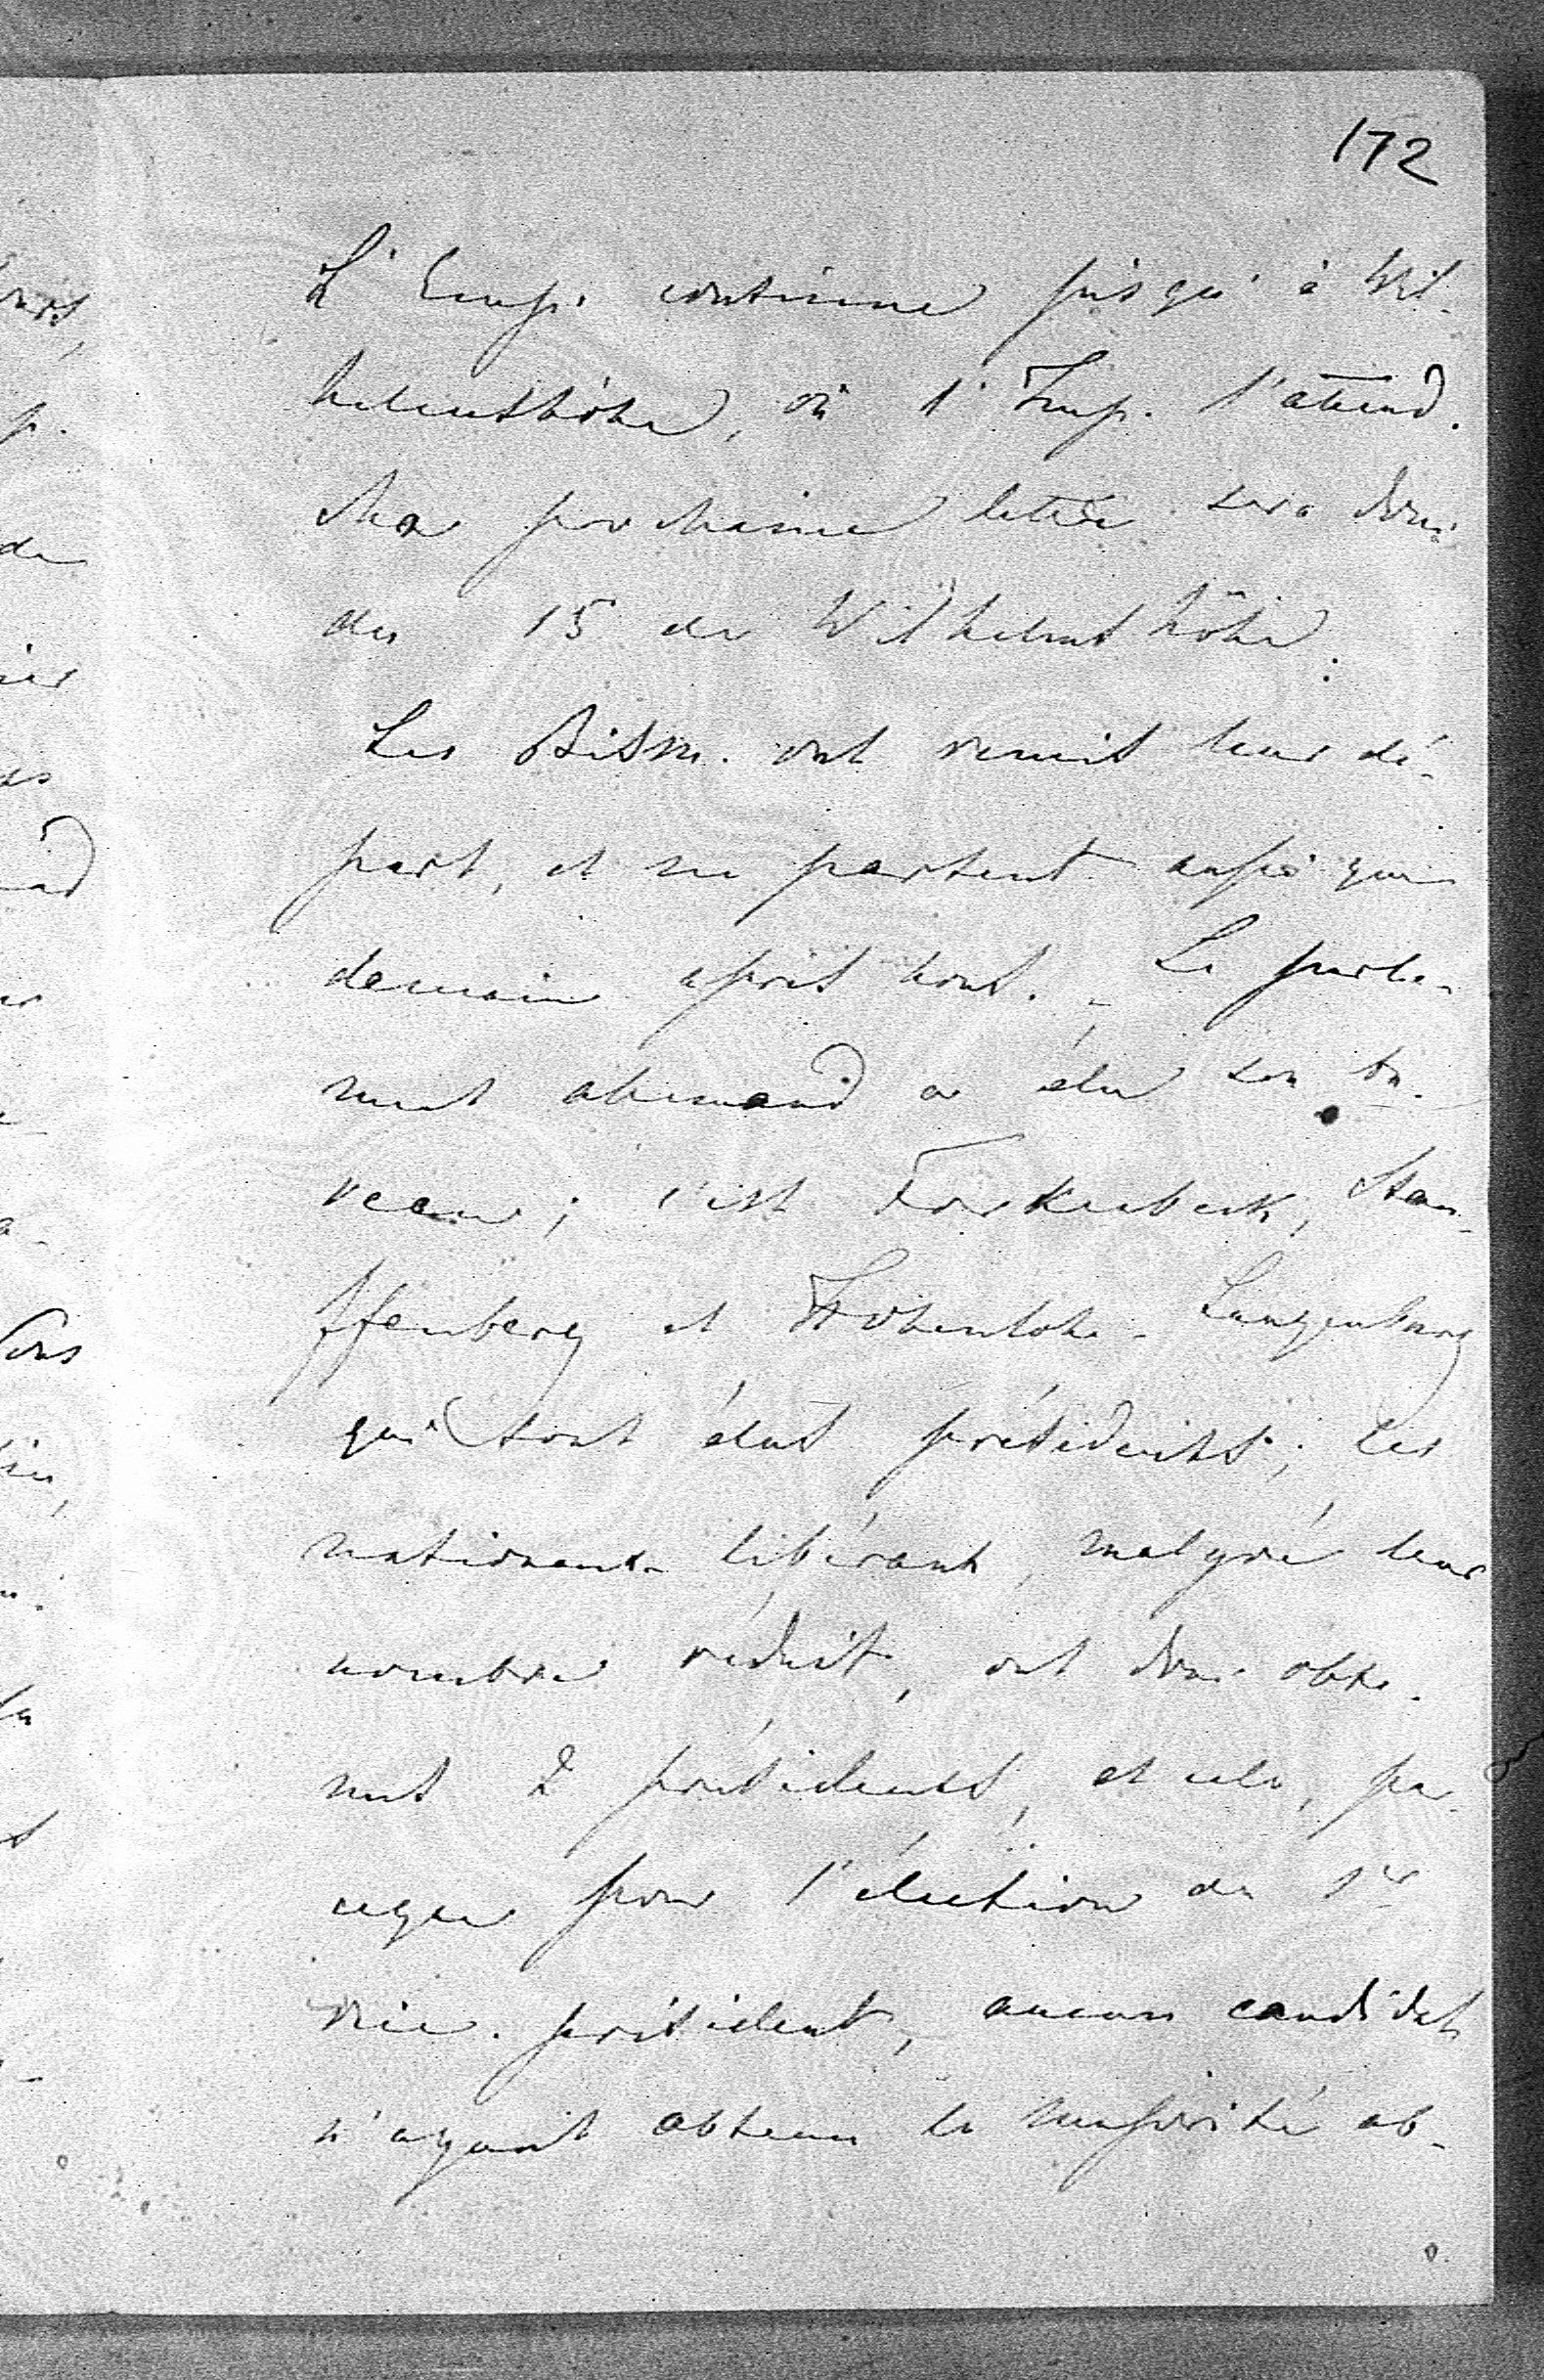 172
L'Emp. continue jusqu'à Wil-
helmshöhe, où l'Imp. l'attend.
Ma prochaine lettre sera donc
du 15 de Wilhelmshöhe.
Les Bism. ont remis leur dé-
part, et ne partent aussi que
demain après tout. - Le parle-
ment allemand a élu son bu-
reau; c'est Forkenbeck, Stau-
ffenberg et Hohenlohe-Langenburg
qui sont élus présidents; les
nationaux-libéraux, malgré leur
nombre réduit, ont donc obte-
nus 2 présidents, et cela, par-
ceque pour l'élection du 1er
vice-président, aucun candidat
n'ayant obtenu la majorité ab-